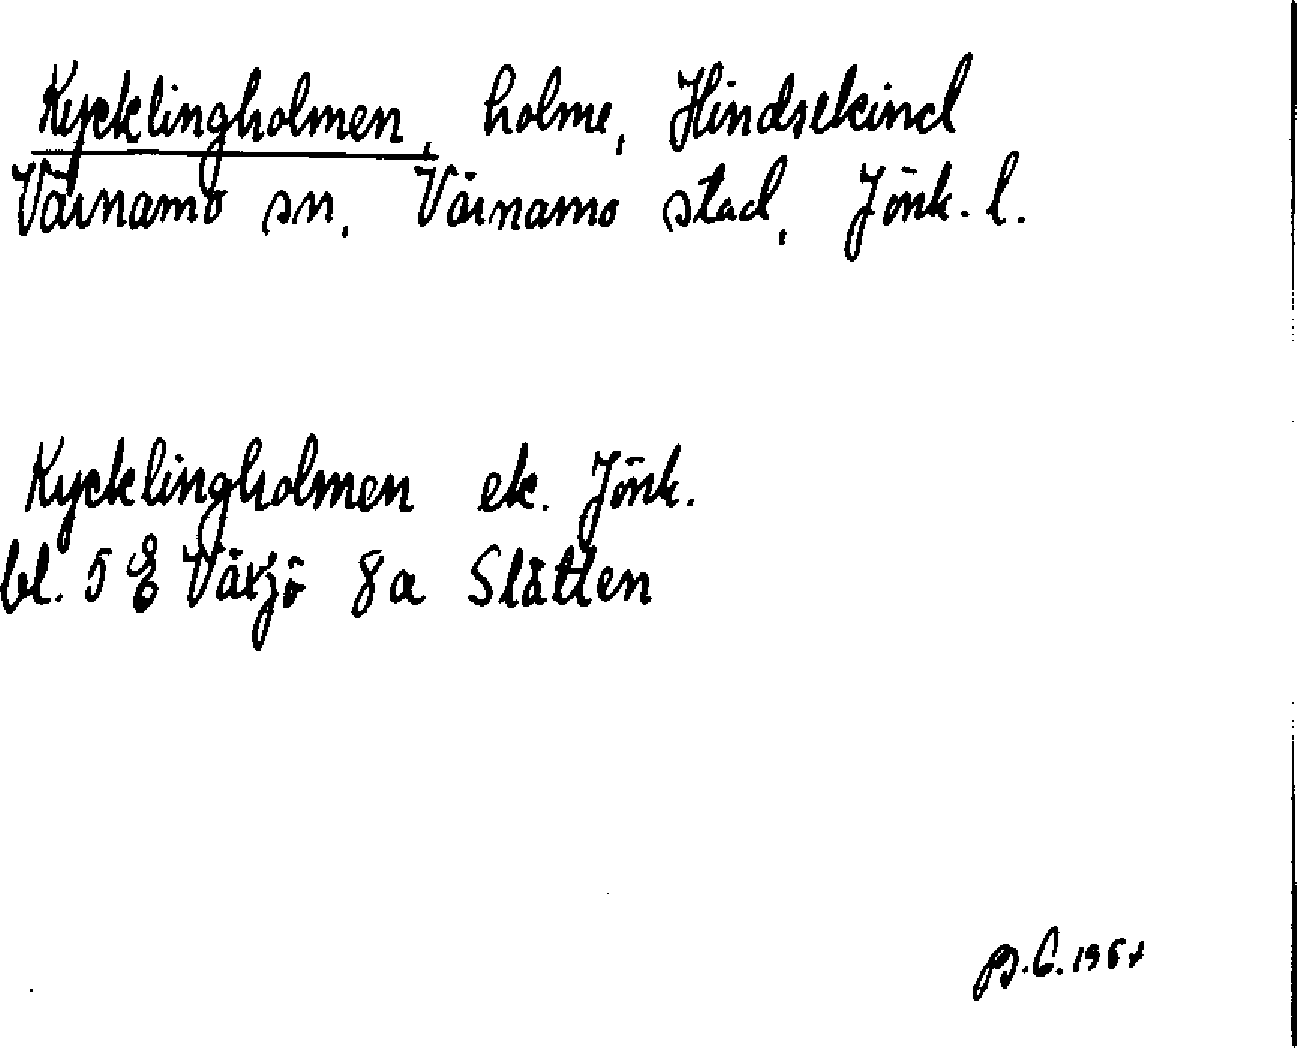 Kycklingholmen, holme, Hindsekind
Värnamo sn, Värnamo stad, Jönk. l.
Kycklingholmen ek. Jönk.
bl. 5 E Växjö 8a Slätten